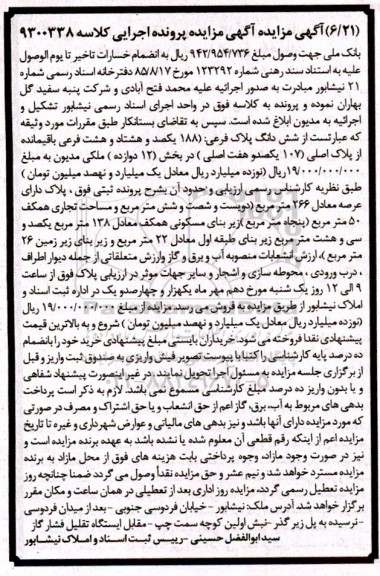 (۶/۲۱) آگهی مزایده آگهی مزایده پرونده اجرایی کلاسه ۹۳۰۰۳۳۸
بانک ملی جهت وصول مبلغ ۹۴۲/۹۵۴/۷۳۶ ریال به انضمام خسارات تاخیر تا یوم الوصول
علیه به استناد سند رهنی شماره ۱۲۳۲۹۲ مورخ ۸۵/۸/۱۷ دفترخانه اسناد رسمی شماره
۲۱ نیشابور مبادرت به صدور اجرائیه علیه محمد فتح آبادی و شرکت پنبه سفید گل
بهاران نموده و پرونده به کلاسه فوق در واحد اجرای اسناد رسمی نیشابور تشکیل و
اجرائیه به مدیون ابلاغ شده است. سپس به تقاضای بستانکار طبق مقررات مورد وثیقه
که عبارتست از شش دانگ پلاک فرعی: (۱۸۸ یکصد و هشتاد و هشت فرعی باقیمانده
از پلاک اصلی (۱۰۷ یکصدو هفت اصلی) در بخش (۱۲ دوازده) ملکی مدیون به مبلغ
۱۹/۰۰۰/۰۰۰/۰۰۰ ریال (نوزده میلیارد ریال معادل یک میلیارد و نهصد میلیون تومان)
طبق نظریه کارشناس رسمی ارزیابی و حدود آن بشرح پرونده ثبتی فوق ، پلاک دارای
عرصه معادل ۲۶۶ متر مربع (دویست و شصت و شش متر مربع و مساحت تجاری همکف
۵۰ متر مربع (پنجاه متر مربع) زیر بنای مسکونی همکف معادل ۱۳۸ متر مربع یکصد و
سی و هشت متر مربع زیر بنای طبقه اول معادل ۲۲ متر مربع و زیر بنای زیر زمین ۲۶
متر مربع)، ارزش انشعابات منصوبه آب و برق و گاز وارزش متعلقاتی از جمله دیوار اطراف
، درب ورودی ، محوطه سازی و اشجار و سایر جهات موثر در ارزیابی پلاک فوق از ساعت
۹ الی ۱۲ روز یک شنبه مورخ دهم مهر ماه یکهزار و چهارصدو یک در اداره ثبت اسناد و
املاک نیشابور از طریق مزایده به فروش می رسد. مزایده از مبلغ ۱۹/۰۰۰/۰۰۰/۰۰۰ ریال
(نوزده میلیارد ریال معادل یک میلیارد و نهصد میلیون تومان) شروع و به بالاترین قیمت
پیشنهادی نقدا فروخته می شود. خریداران بایستی مبلغ پیشنهادی خرید خود را بانضمام
ده درصد پایه کارشناسی را کتبا با پیوست تصویر فیش واریزی به صندوق ثبت واریز و قبل
از برگزاری جلسه مزایده به مسئول اجرا تحویل نمایند. در غیر اینصورت پیشنهاد شفاهی
و یا بدون واریز ده درصد مبلغ کارشناسی مسموع نمی باشد. لازم به ذکر است پرداخت
بدهی های مربوط به آب، برق، گاز اعم از حق انشعاب و یا حق اشتراک و مصرف در صورتی
که مورد مزایده دارای آنها باشد و نیز بدهی های مالیاتی و عوارض شهرداری و غیره تا تاریخ
مزایده اعم از اینکه رقم قطعی آن معلوم شده یا نشده باشد به عهده برنده مزایده است و
نیز در صورت وجود مازاد، وجوه پرداختی بابت هزینه های فوق از محل مازاد به برنده
مزایده مسترد خواهد شد و نیم عشر و حق مزایده نقدا وصول می گردد ضمنا چنانچه روز
مزایده تعطیل رسمی گردد، مزایده روز اداری بعد از تعطیلی در همان ساعت و مکان مقرر
برگزار خواهد شد. آدرس ملک: نیشابور - خیابان فردوسی جنوبی - بعد از میدان فردوسی
- نرسیده به پل زیر گذر - نبش اولین کوچه سمت چپ - مقابل ایستگاه تقلیل فشار گاز
سید ابوالفضل حسینی - رییس ثبت اسناد و املاک نیشابور